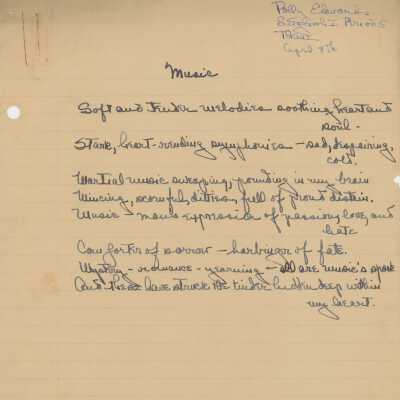 Polly Edwards
English I Period 5
Theme
April 8th
Music
Soft and tender melodies soothing heart and
soul.
Stark, heart-rending symphonies - sad, despairing,
cold.
Martial music swaping, pounding in my brain
Mincing, scornful, ditties, full of proud distain.
Music - mans expression of passion, love, and
hate
Comforter of sorrow - harbinger of fate.
Mystery - romance - yearning - all are music's spark
And these have struck the tinder hidden deep within
my heart.